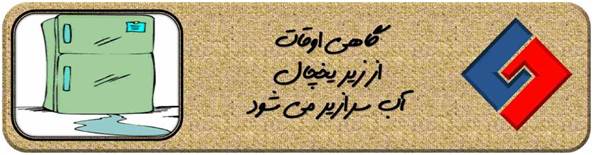 گاهی اوقات
از زیر یخچال
آب سرازیر می شود